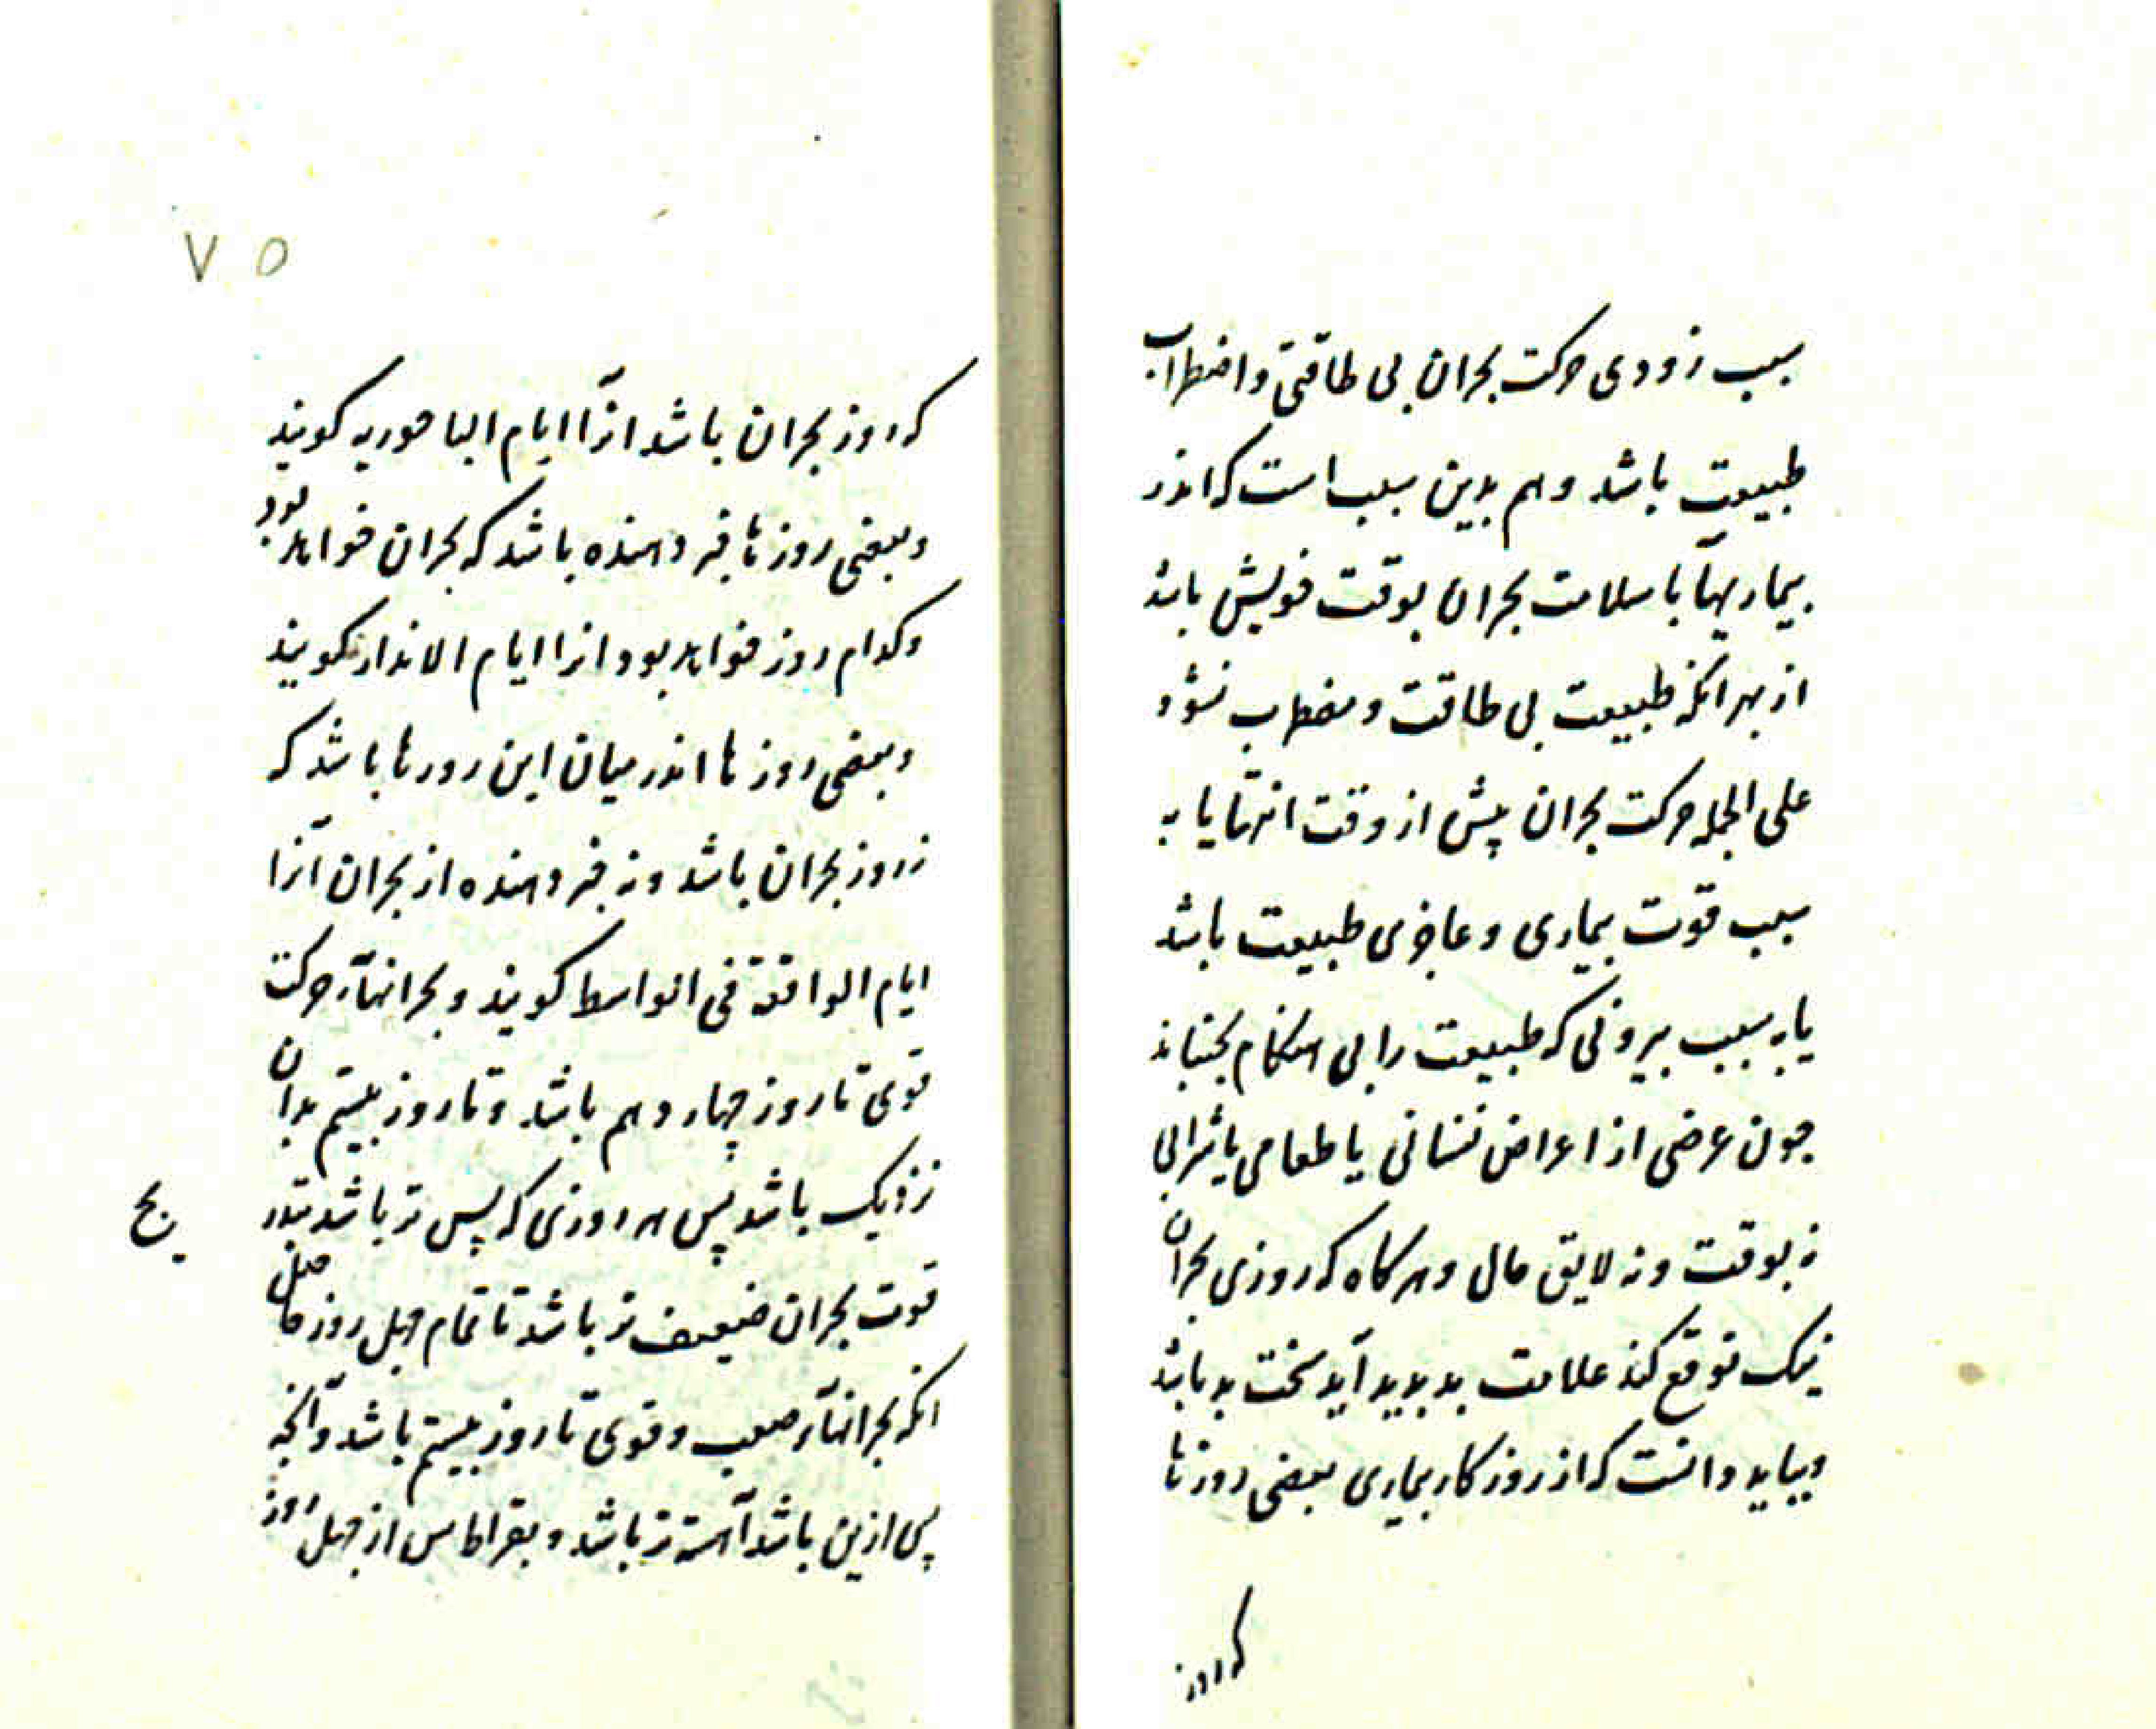 سبب زودی حرکت بحران بی طاقتی و اضطراب
طبیعت باشد و هم بدین سبب است که اندر
بیماریهاء با سلامت بحران بوقت خویش باشد
از بهر انکه طبیعت بی طاقت و مضطرب نشود
علی الجمله حرکت بحران پیش از وقت انتها یا به
سبب قوت بیماری و عاجزی طبیعت باشد
یا به سبب بیرونی که طبیعت را بی هنکام بجنباند
جون عرضی از اعراض نفسانی یا طعامی یا شرابی
نه بوقت و نه لایق حال و هرکاه که روزی بحران
نیک توقع کنند علامت بد بدید آید سخت بد باشد
و بباید دانست که از روزکار بیماری بعضی روزها
که روز
۷۵
که روز بحران باشد انرا ایام الباحوریه کویند
و بعضی روزها خبر دهنده باشد که بحران خواهد بود
و کدام روز خواهد بود انرا ایام الانذار کویند
و بعضی روزها اندر میان این روزها باشد که
نه روز بحران باشد و نه خبر دهنده از بحران آنرا
ایام الواقعة فی الواسط کویند و بحرانهاء حرکت
قوی تا روز چهاردهم باشد و تا روز بیستم بدان
نزدیک باشد پس هر روزی که پس تر باشد بقدر
قوت بحران ضعیف تر باشد تا تمام چهل روز حاصل
انکه بحرانهاء صعب و قوی تا روز بیستم باشد و آنچه
پس ازین باشد آهسته تر باشد و بقراط پس از چهل روز